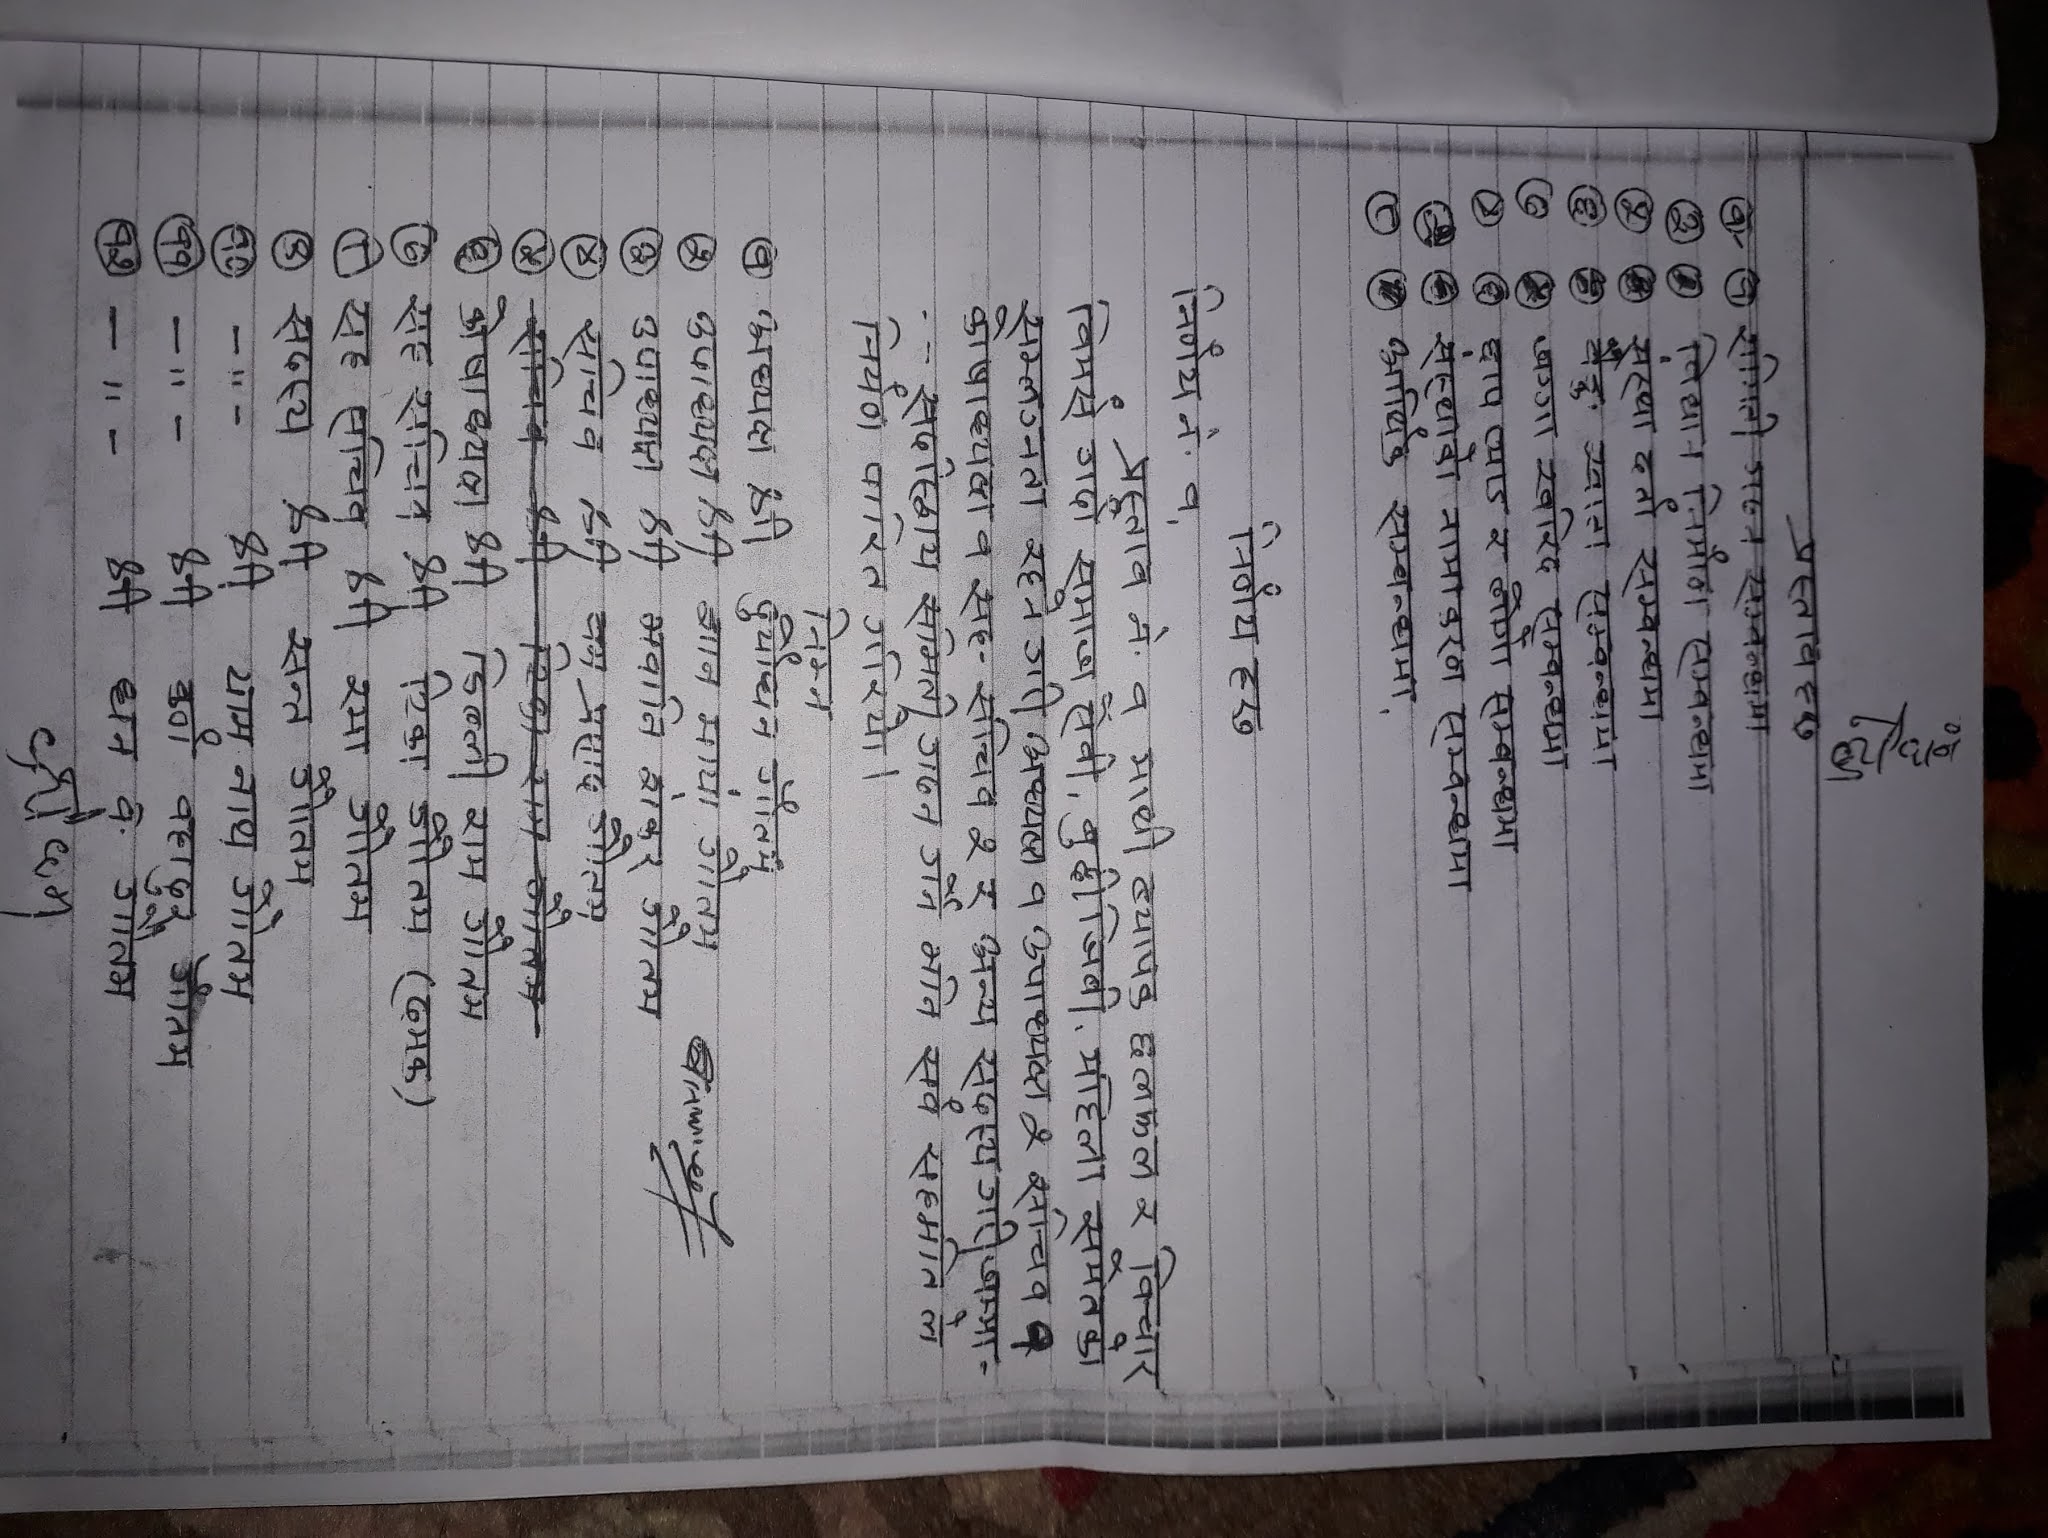 प्रस्तावहरु
१. १ समिति गठन सम्बन्धमा
२ विधान निर्माण सम्बन्धमा
संस्था दर्ता सम्बन्धमा
६ सम्बन्धमा
७ जग्गा खरिद सम्बन्धमा
५ छाप प्याड र सम्बन्धमा
संस्थाको नामाकरण सम्बन्धमा
८ आर्थिक सम्बन्धमा,
निर्णयहरु
निर्णय नं. १,
प्रस्ताव नं. १ माथी व्यापक छलफल र विचार
विमर्श गर्दा समाज सेवी, बुद्धीजिवी, महिला समेतका
सम्लग्नता रहने गरी अध्यक्ष १ उपाध्यक्ष २ सचिव १
कोषाध्यक्ष १ सह-सचिव २ र अन्य सदस्य गरी जम्मा-
सदस्यीय समिति गठन गर्ने भनि सर्व सहमति ले
निर्णय पारित गरियो।
निम्न
१ अध्यक्ष श्री दुर्योधन गौतम
२ उपाध्यक्ष श्री ज्ञान माया गौतम
३ उपाध्यक्ष श्री भवानि शंकर गौतम
४ सचिव श्री प्रसाद गौतम
५ सचिव श्री टिका राम गौतम
६ कोषाध्यक्ष श्री डिल्ली राम गौतम
७ सह सचिव श्री टिका गौतम (ठमक)
८ सह सचिव श्री रमा गौतम
९ सदस्य श्री सन्त गौतम
१० -"- श्री याम नाथ गौतम
११ -"- श्री बहादुर गौतम
१२ -"- श्री धन वि. गौतम